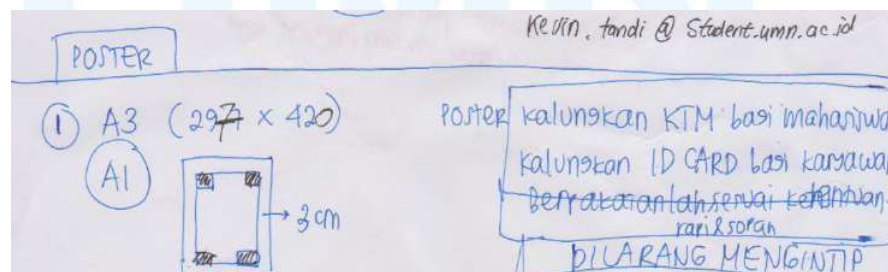 Kevin.tandi @ Student.umn.ac.id
POSTER
① A3 (297 × 420)
A1
→ 3 cm
POSTER
kalungkan KTM bagi mahasiswa
kalungkan ID CARD bagi karyawa
Berpakaianlah sesuai ketentuan
rapi & sopan
DILARANG MENGINTIP